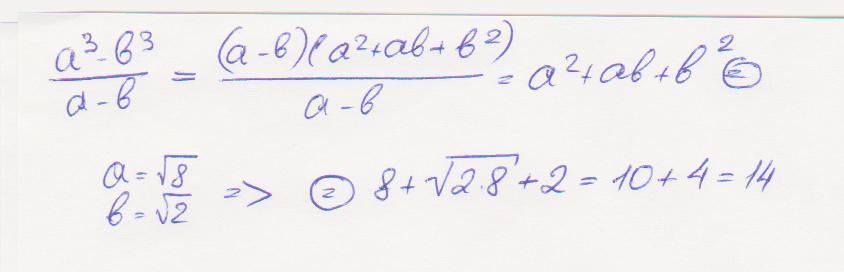 (a³-b³)/(a-b) = ((a-b)(a²+ab+b²))/(a-b) = a²+ab+b² ⊜
a=√8
b=√2 => ⊜ 8+√(2·8)+2=10+4=14